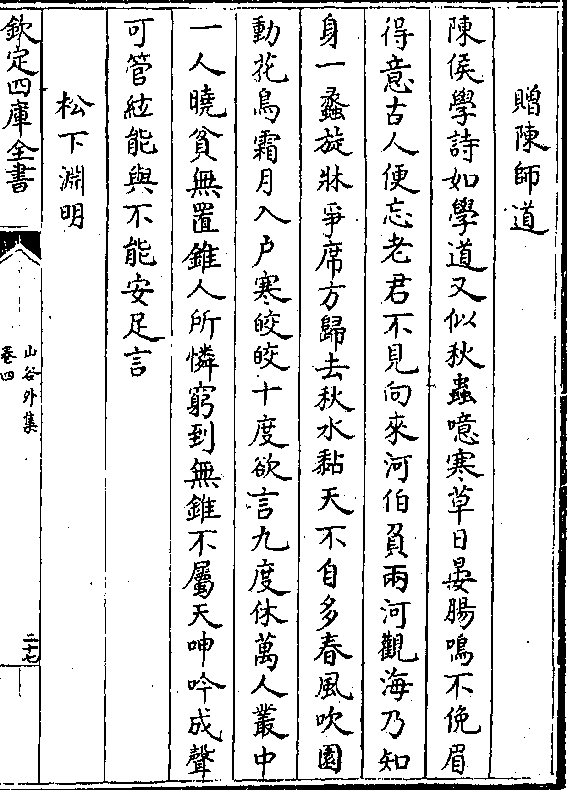 贈陳師道
陳侯學詩如學道又似秋蟲噫寒草日晏腸鳴不俛眉
得意古人便忘老君不見向來河伯負兩河觀海乃知
身一蠡旋牀爭席方歸去秋水黏天不自多春風吹園
動花鳥霜月入户寒皎皎十度欲言九度休萬人叢中
一人曉貧無置錐人所憐窮到無錐不屬天呻吟成聲
可管絃能與不能安足言
松下淵明
欽定四庫全書
山谷外集
卷四
二十七